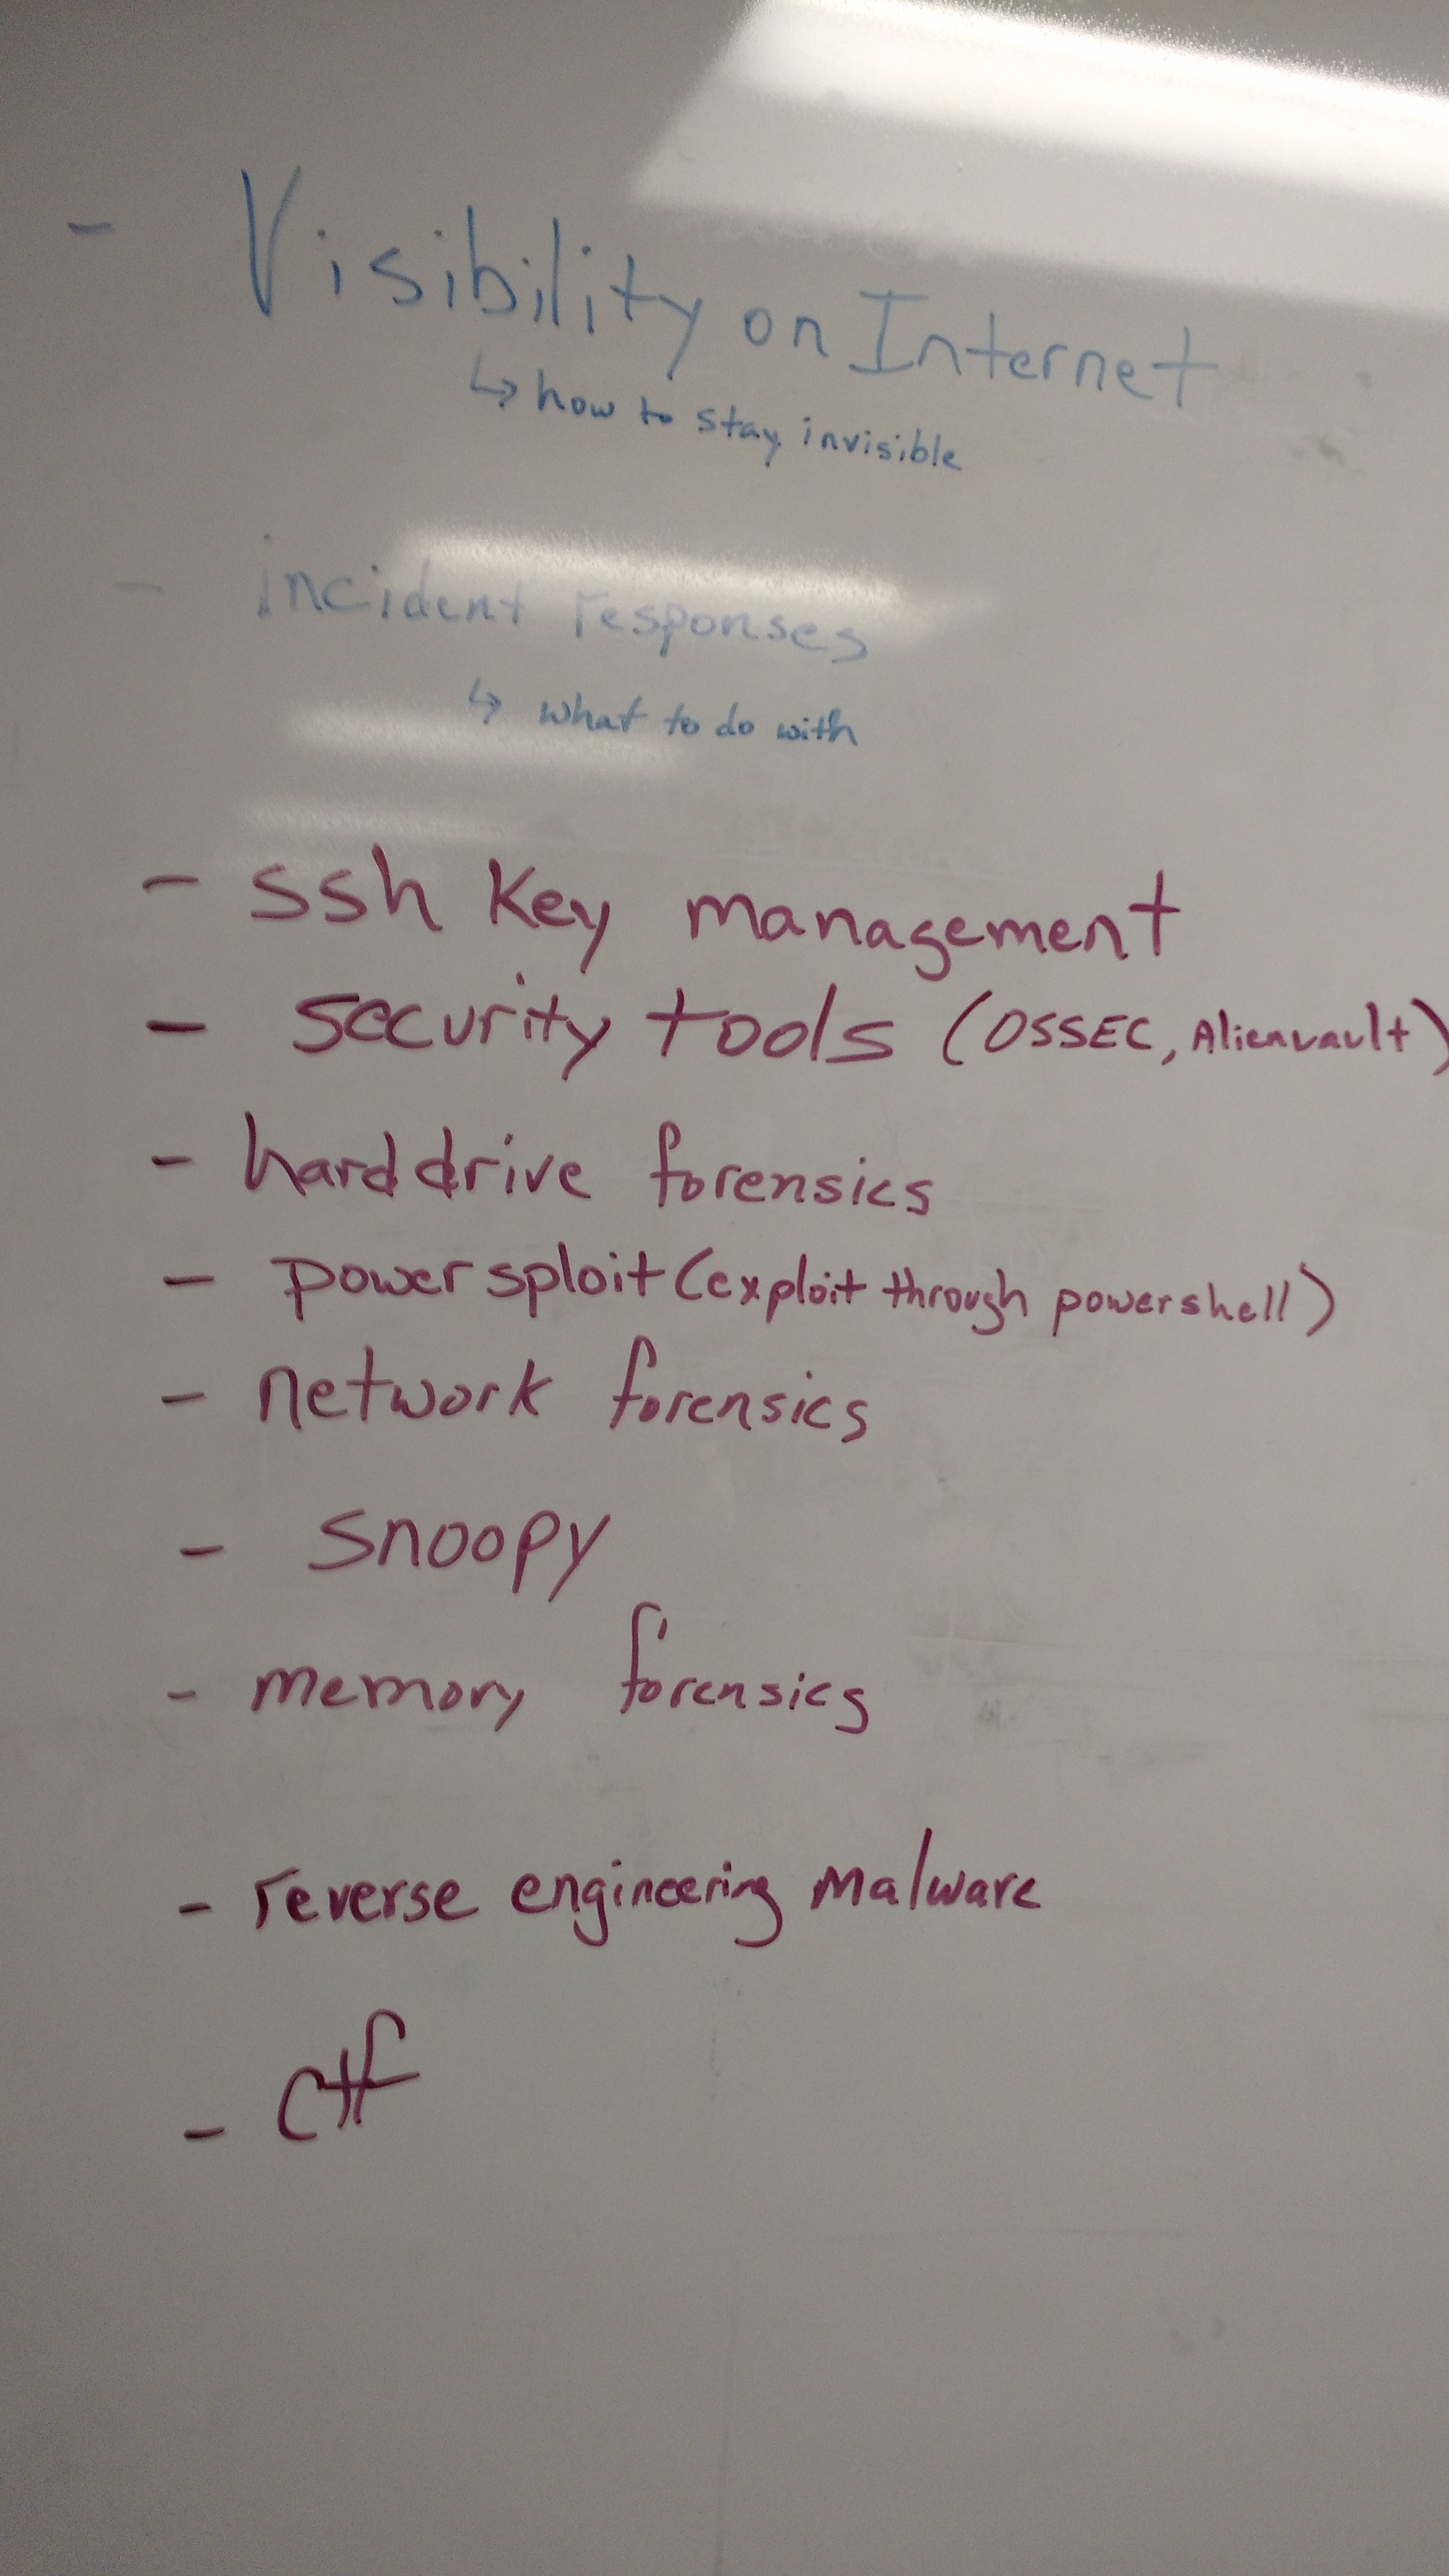 - Visibility on Internet
↳ how to stay invisible
- incident responses
↳ what to do with
- ssh key management
- security tools (OSSEC, Alienvault)
- harddrive forensics
- powersploit (exploit through powershell)
- network forensics
- snoopy
- memory forensics
- reverse engineering malware
- ctf